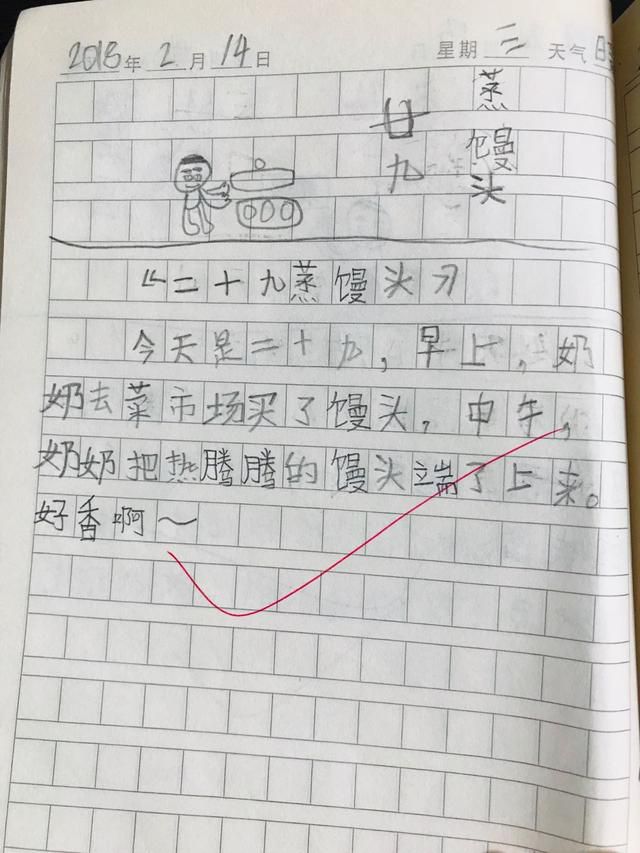 2018年2月14日 星期三 天气
蒸馒头
廿九
“二十九蒸馒头”
今天是二十九，早上，奶
奶去菜市场买了馒头，中午，
奶奶把热腾腾的馒头端了上来。
好香啊～